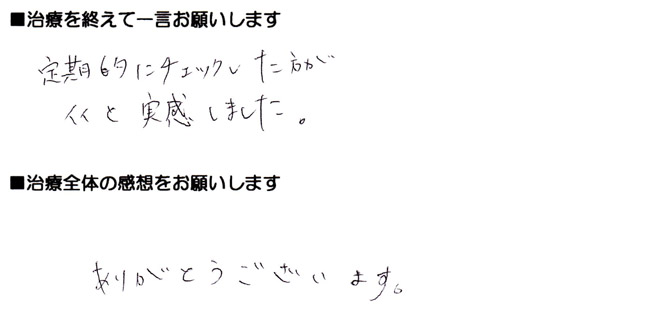 ■治療を終えて一言お願いします
定期的にチェックした方が
イイと実感しました。
■治療全体の感想をお願いします
ありがとうございます。